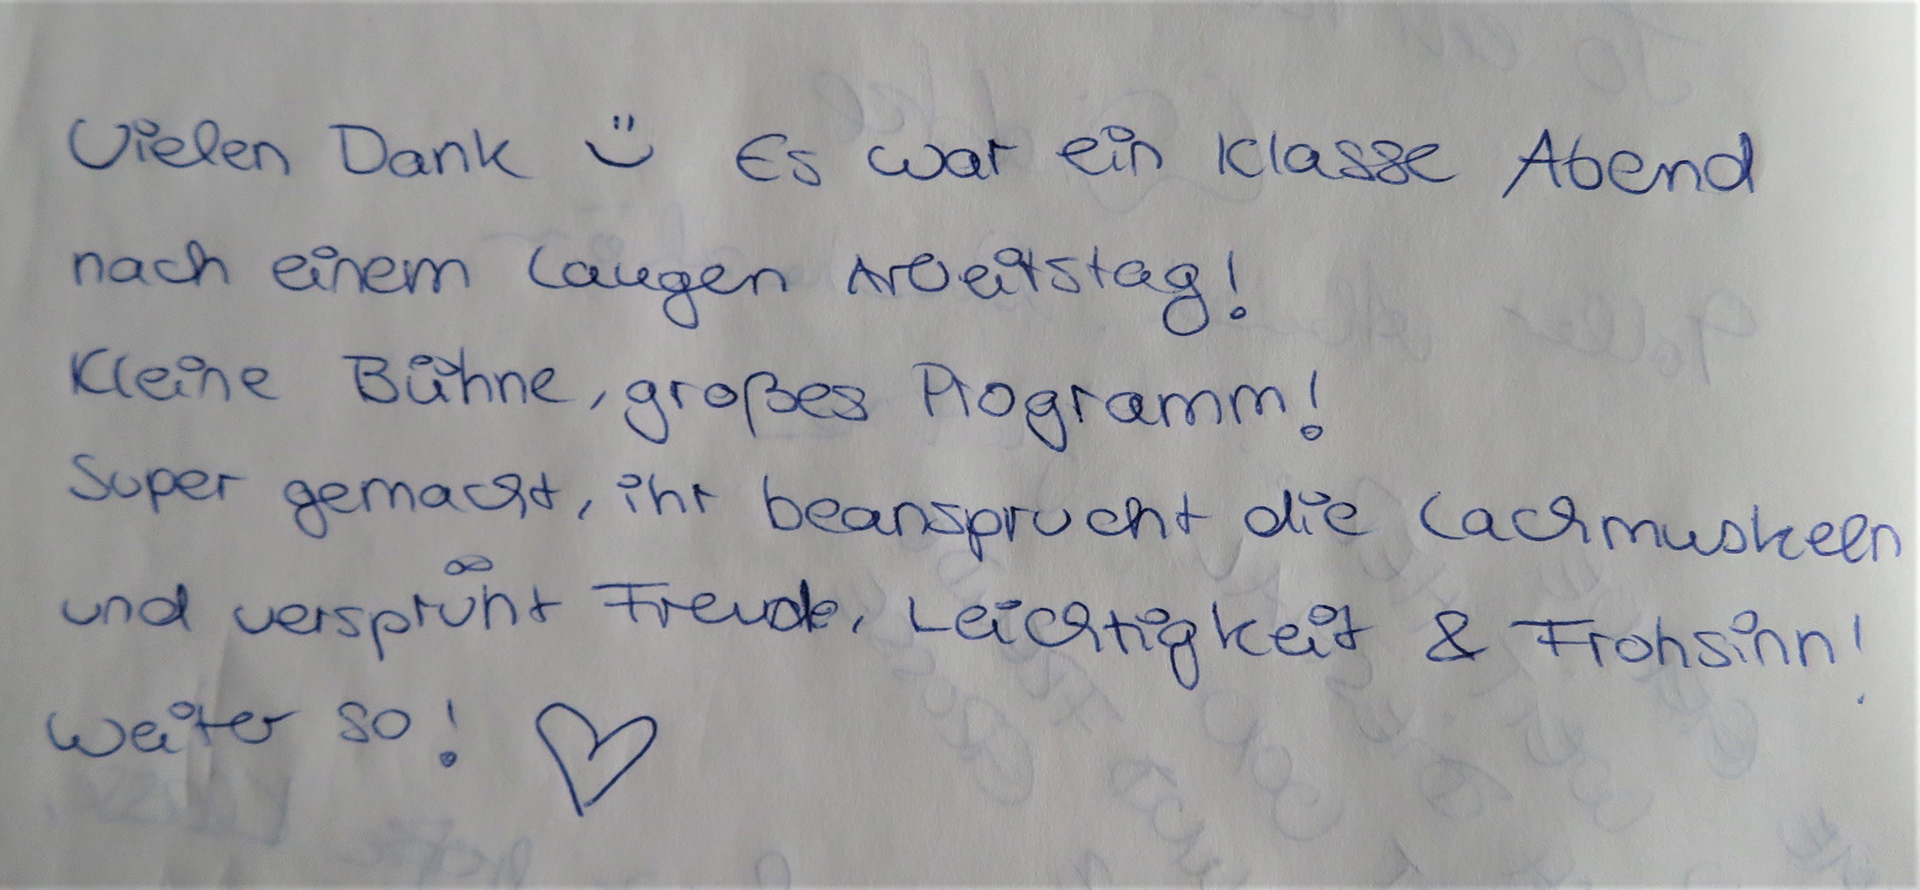 Vielen Dank ü Es war ein klasse Abend
nach einem langen Arbeitstag!
Kleine Bühne, großes Programm!
Super gemacht, ihr beansprucht die Lachmuskeln
und versprüht Freude, Leichtigkeit & Frohsinn!
weiter so! ♡